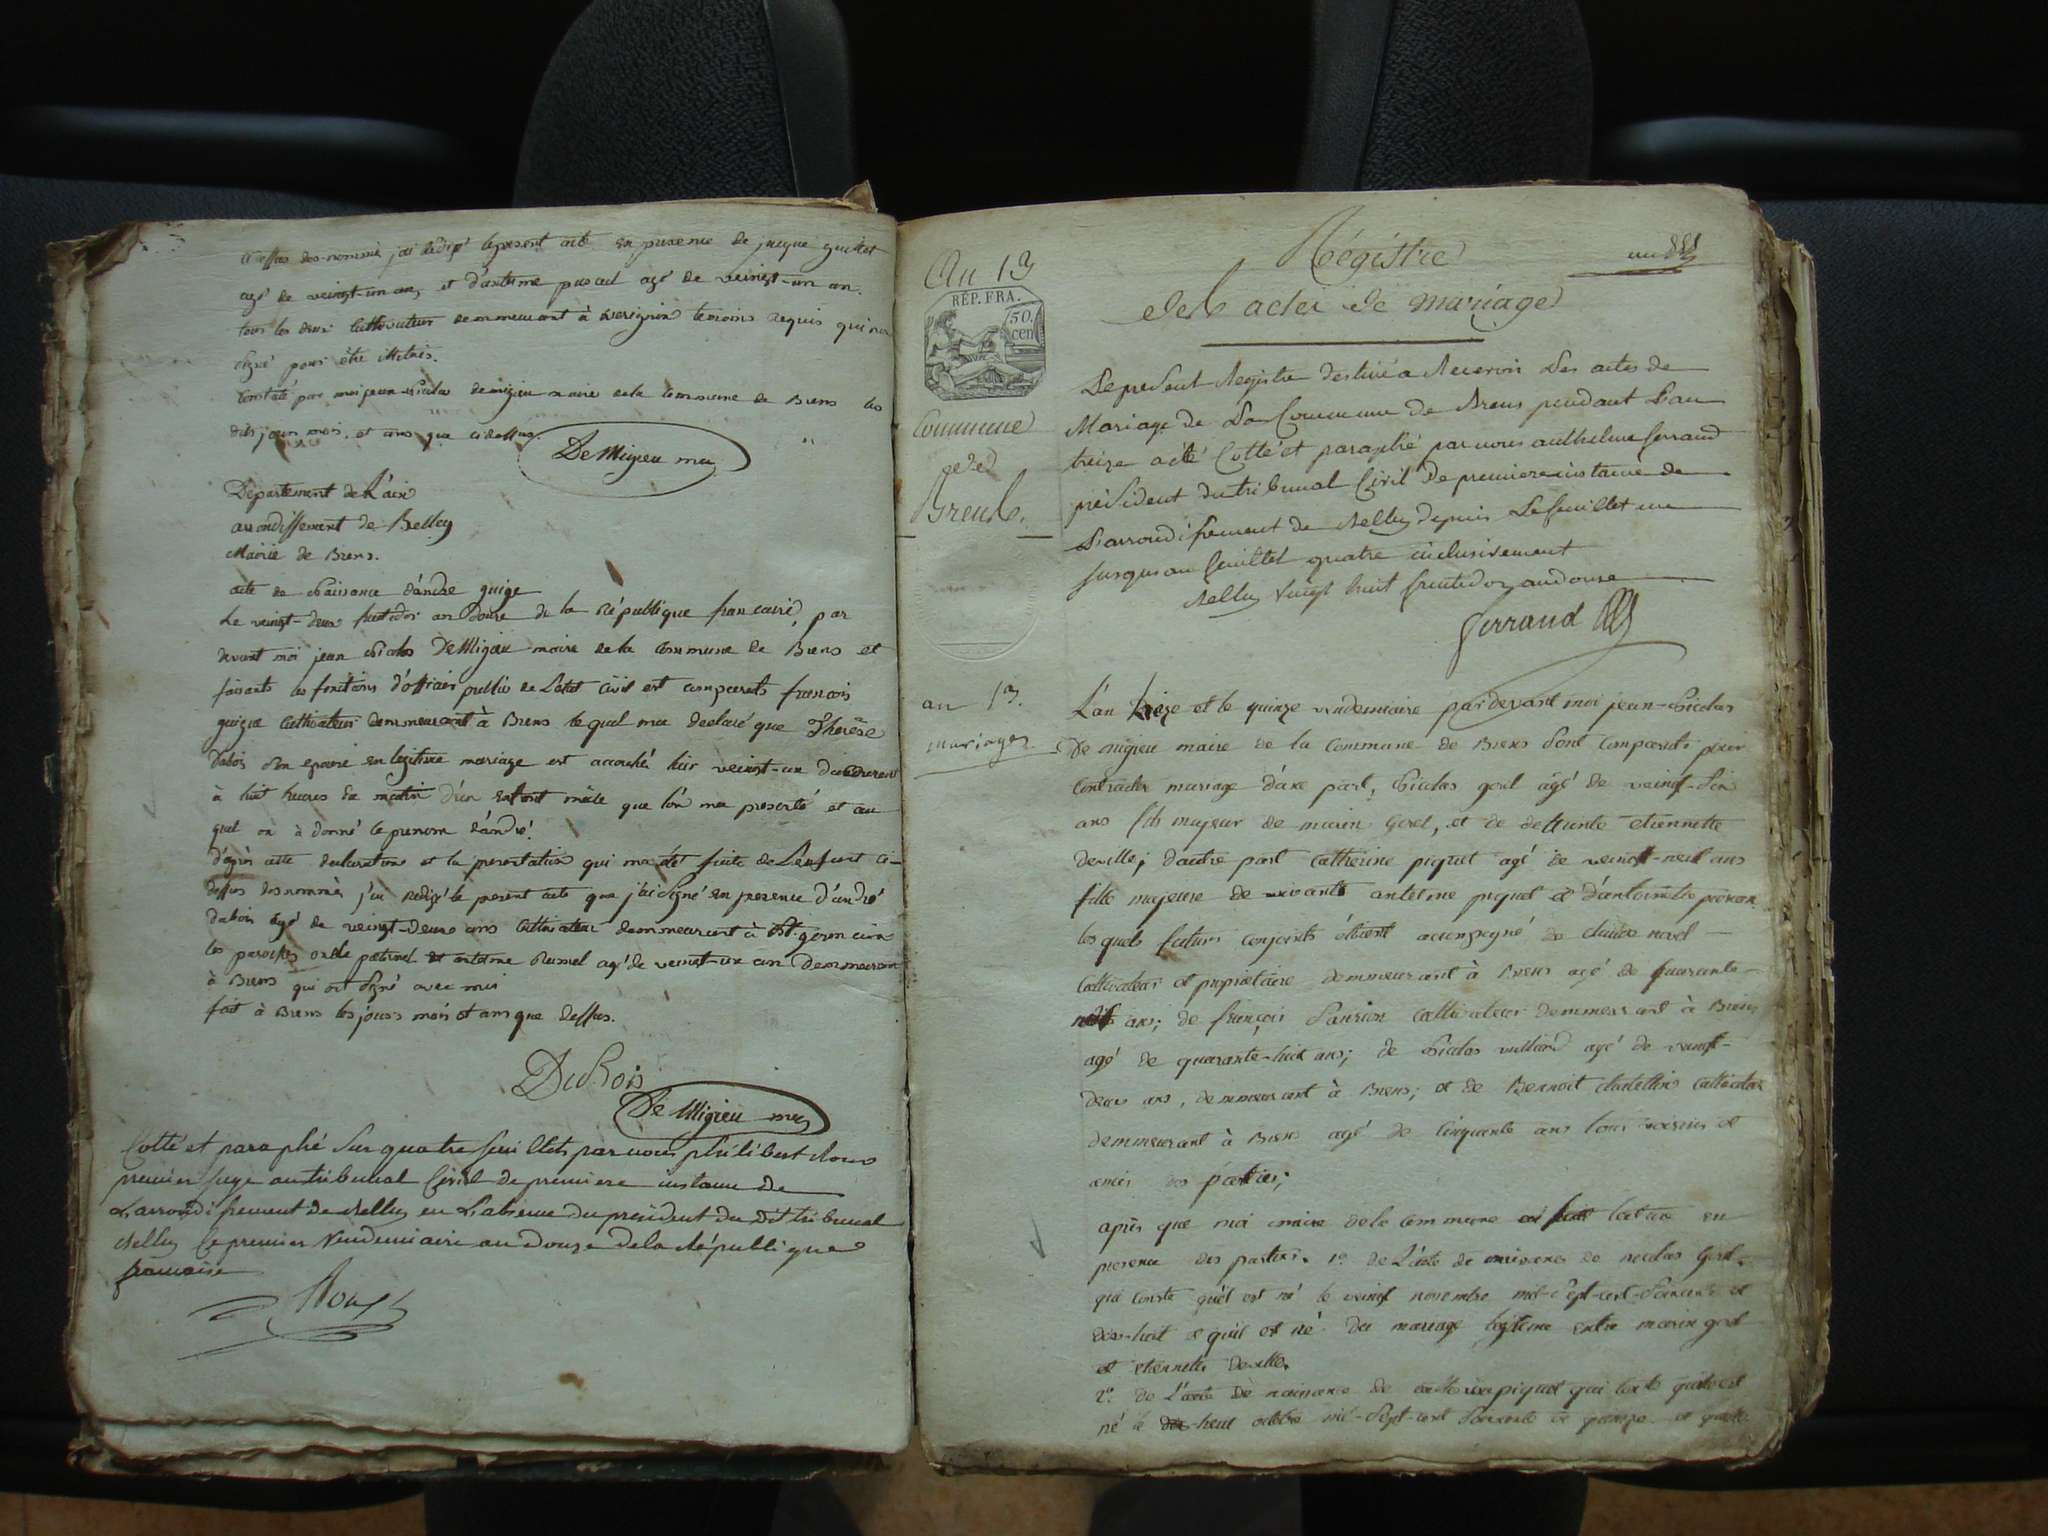 dessus des-nommé j'ai rédigé le present acte en presence de jacque guillot
agé de veingt-un ans et d'antelme pascal agé de veingt-un an.
tous les deux Cultivateur demmeurant à temoins requis qui n'on
signé pour être illetrés.
Constaté par moi jean-Nicolas demigieu maire de la Commune de Brens les
dits jour, mois, et ans que cidessus.
DeMigieu me
Département de L'ain
arrondissement de Belley
Mairie de Brens.
acte de Naissance d'andré guige
Le veingt-deux fructidor an douze de la République francaise, par
devant moi jean Nicolas DeMigieu maire de la commune de Brens et
faisants les fonctions d'officier public de L'etat civil est comparut françois
guigue Cultivateur demmeurant à Brens lequel m'a declaré que Therèse
Dubois son epouse en legitime mariage est accouché hier veingt-un du courrent
à huit heures du matin d'un enfant mâle que l'on m'a presenté et au
quel on à donné le prenom d'andré.
d'après cette declaration et la presentation qui m'a été faite de L'enfant ci-
dessus des nommé, j'ai redigé le present acte que j'ai signé en presence d'andré
dubois agé de veingt-deux ans Cultivateur demmeurant à St. germain
les paroisses oncle paternel et antelme Rumel agé de veingt-un an demmeurant
à Brens qui ont signé avec moi
fait à Brens les jours mois et ans que dessus.
DuBois
De Migieu me
Cotté et paraphé Sur quatre feuillets par nous philibert Roux
premier juge au tribunal Civil de premiere instance de
L'arrondissement de Belley en L'absence du president du Dit tribunal
Belley le premier Vendemiaire an Douze de la République
francaise
Roux
An 13
RÉP. FRA.
50.
cen
Commune
de
Brens.
an 13.
mariages
Régistre
des actes de mariage
un
Le present Registre destiné a Recevoir Les actes de
Mariage de La Commune de Brens pendant L'an
treize a été Cotté et paraphé par nous anthelme ferrand
président du tribunal Civil De premiere instance de
L'arrondissement de Belley depuis Le feuillet un
jusqu'au feuillet quatre inclusivement
Belley Vingt huit fructidor an douze
ferrand
L'an treize et le quinze vendemiaire pardevant moi jean-Nicolas
De migieu maire de la Commune de Brens sont comparuts pour
contracter mariage d'une part, Nicolas gorel âgé de veingt-six
ans fils majeur de marin Gorel, et de deffunte etiennette
deville; d'autre part Catherine piquet agé de veingt-neuf ans
fille majeure de vivants antelme piquet et d'antoinette
lesquels futurs conjoints étaient accompagné de claude novel
Cultivateur et propriètaire demmeurant à Brens agé de quarante-
neuf ans; de françois Cultivateur demmeurant à Brens
agé de quarante-huit ans; de Nicolas agé de veingt-
deux ans, demmeurant à Brens; et de Bennoit Cultivateur
demmeurant à Brens agé de Cinquante ans tous voisins et
amis des parties;
après que moi maire de la commune ai fait lecture en
presence des parties. 1º. de L'acte de naissance de nicolas Gorel.
qui conste qu'il est né le veingt novembre mil-sept-cent-soixante et
dix-huit et qu'il est né du mariage legitime entre marin gorel
et etiennette deville.
2º. de L'acte de naissance de catherine piquet qui conste qu'elle est
né le octobre mil-sept-cent soixante et quinze et qu'elle